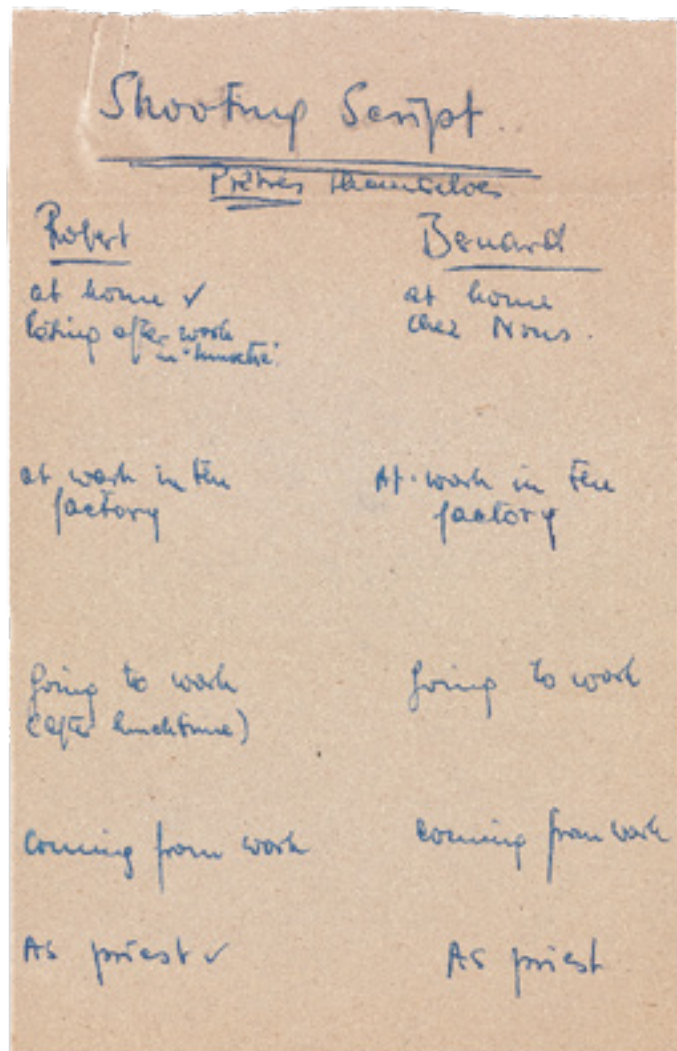 Shooting Script.
Prêtres themselves
Robert
at home ✓
Eating after work
in
at work in the
factory
going to work
(after lunchtime)
coming from work
As priest ✓
Benard
at home
chez Nous.
At work in the
factory
going to work
coming from work
As priest